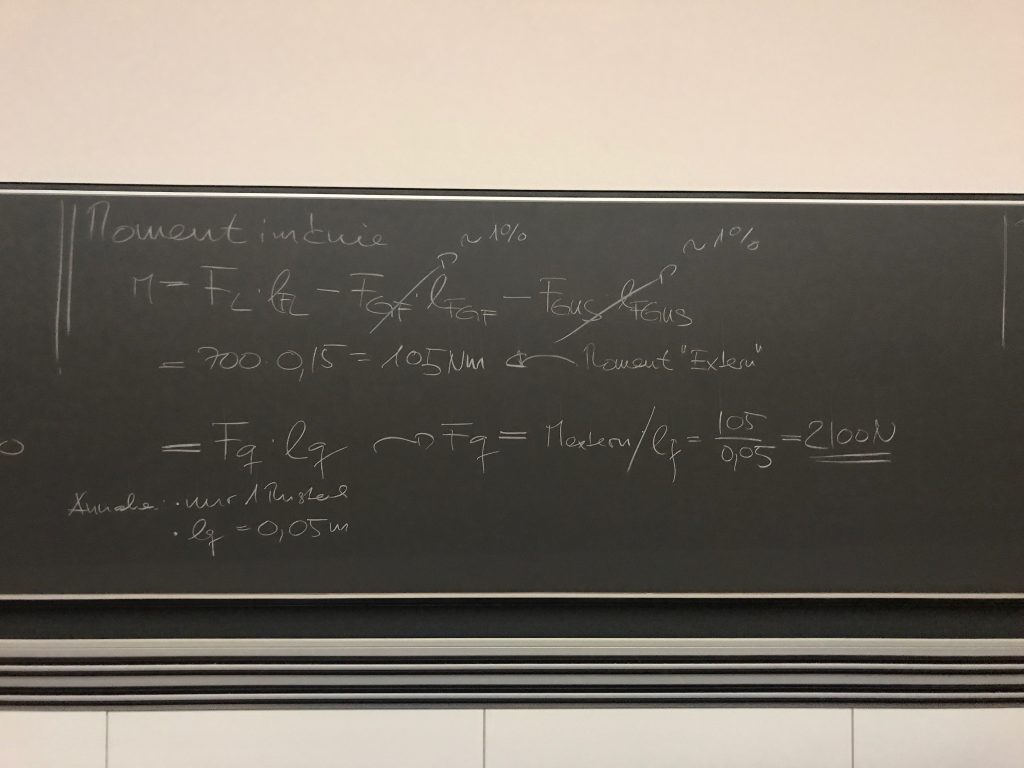 Moment im Knie
~1% ~1%
M = F_L · l_FL − F_GF · l_FGF − F_GUS l_FGUS
= 700 0,15 = 105 Nm ← Moment "Extern"
= Fq · lq → Fq = Mextern / lq = 105/0,05 = 2100N
Annahme: · nur 1 Muskel
· lq = 0,05 m